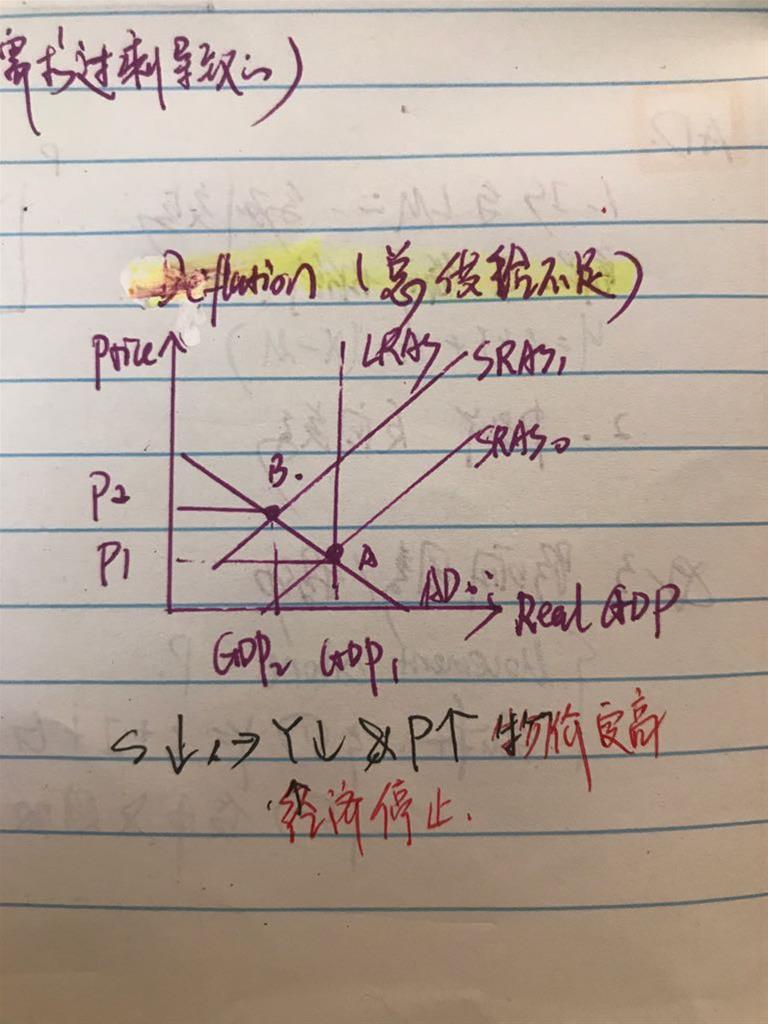 需求过剩导致的)
Deflation (总供给不足)
Price LRAS SRAS₁
SRAS₀
B.
P2
P1 A
AD₀
Real GDP
GDP₂ GDP₁
S↓, → Y↓ & P↑ 物价变高
经济停止.